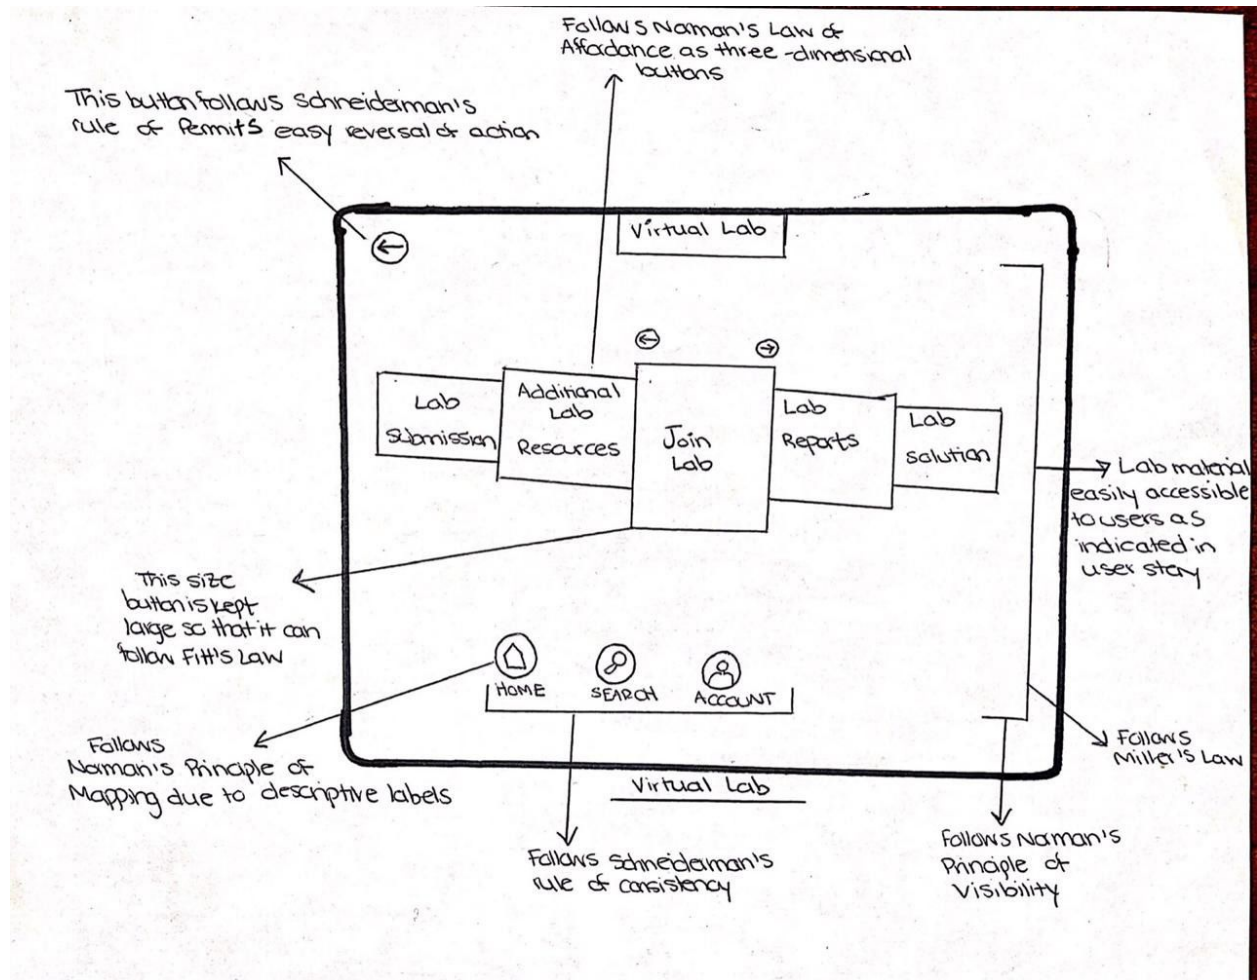 Follows Norman's Law of
Affordance as three-dimensional
buttons
This button follows Schneiderman's
rule of Permits easy reversal of action
Virtual Lab
Lab
Submission
Additional
Lab
Resources
Join
Lab
Lab
Reports
Lab
Solution
Lab material
easily accessible
to users as
indicated in
user story
This size
button is kept
large so that it can
follow Fitt's Law
HOME
SEARCH
ACCOUNT
Follows
Norman's Principle of
Mapping due to descriptive labels
Virtual Lab
Follows
Miller's Law
Follows Schneiderman's
rule of consistency
Follows Norman's
Principle of
Visibility